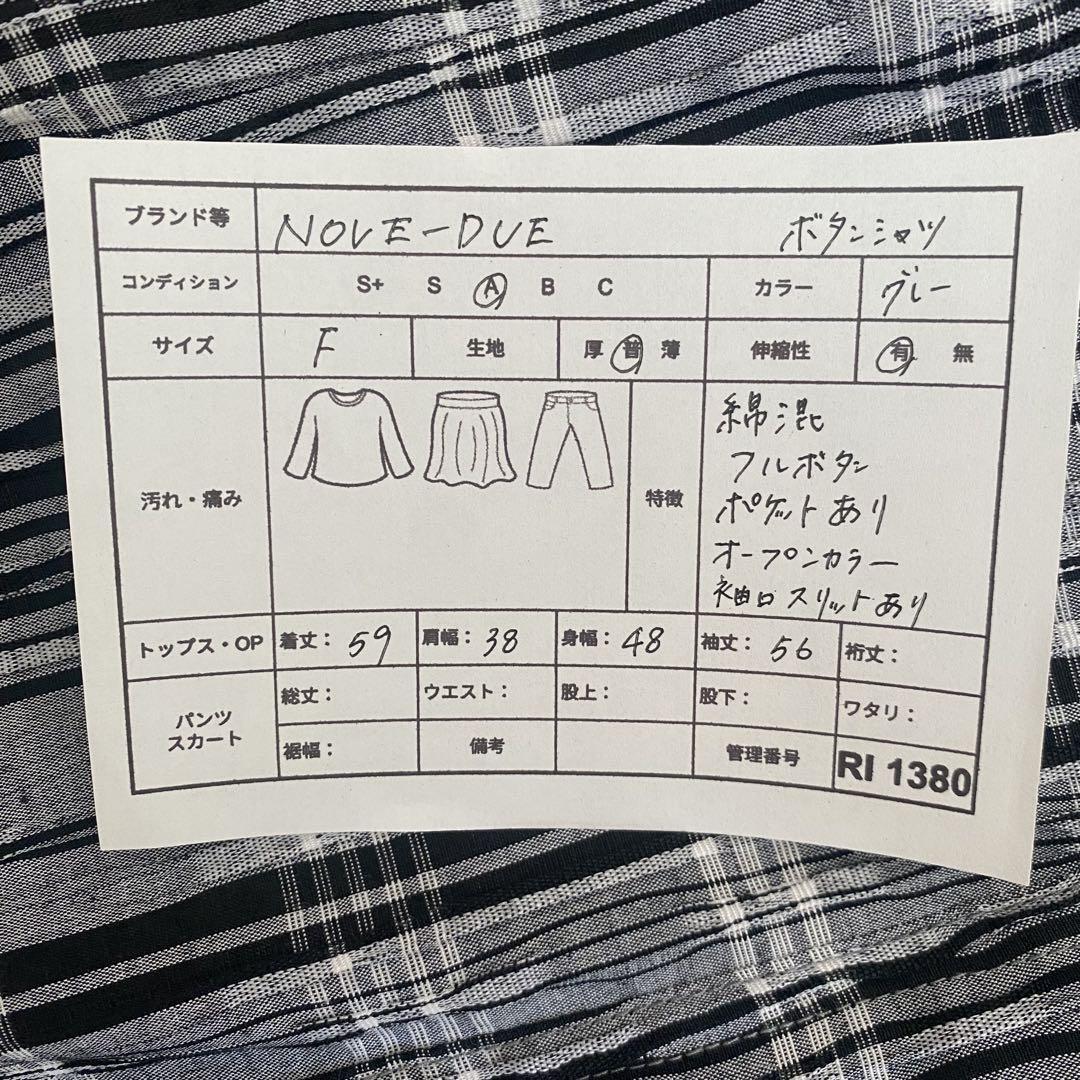 ブランド等 NOVE-DUE ボタンシャツ
コンディション S+ S A B C カラー グレー
サイズ F 生地 厚 普 薄 伸縮性 有 無
汚れ・痛み 特徴
綿混
フルボタン
ポケットあり
オープンカラー
袖口スリットあり
トップス・OP 着丈: 59 肩幅: 38 身幅: 48 袖丈: 56 裄丈:
パンツ
スカート
総丈: ウエスト: 股上: 股下: ワタリ:
裾幅: 備考 管理番号 RI 1380